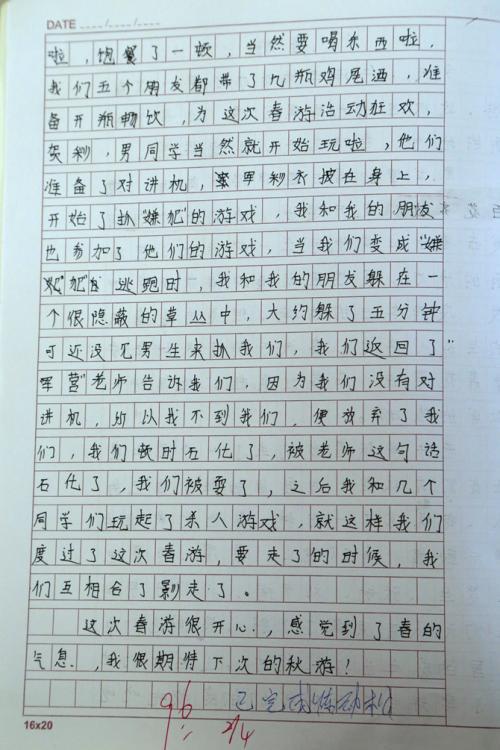 DATE
啦，饱餐了一顿，当然要喝东西啦，
我们五个朋友都带了几瓶鸡尾酒，准
备开瓶畅饮，为这次春游活动狂欢，
贺秒，男同学当然就开始玩啦，他们
准备了对讲机，军秒衣披在身上，
开始了抓"嫌犯"的游戏，我和我的朋友
也参加了他们的游戏，当我们变成"嫌
犯"逃跑时，我和我的朋友躲在一
个很隐蔽的草丛中，大约躲了五分钟
可还没见男生来抓我们，我们返回了"
军营"老师告诉我们，因为我们没有对
讲机，所以找不到我们，便放弃了我
们，我们顿时石化了，被老师这句话
石化了，我们被耍了，之后我和几个
同学们玩起了杀人游戏，就这样我们
度过了这次春游，要走了的时候，我
们互相合了影走了。
这次春游很开心，感觉到了春的
气息，我很期待下次的秋游！
96
2/4
16x20